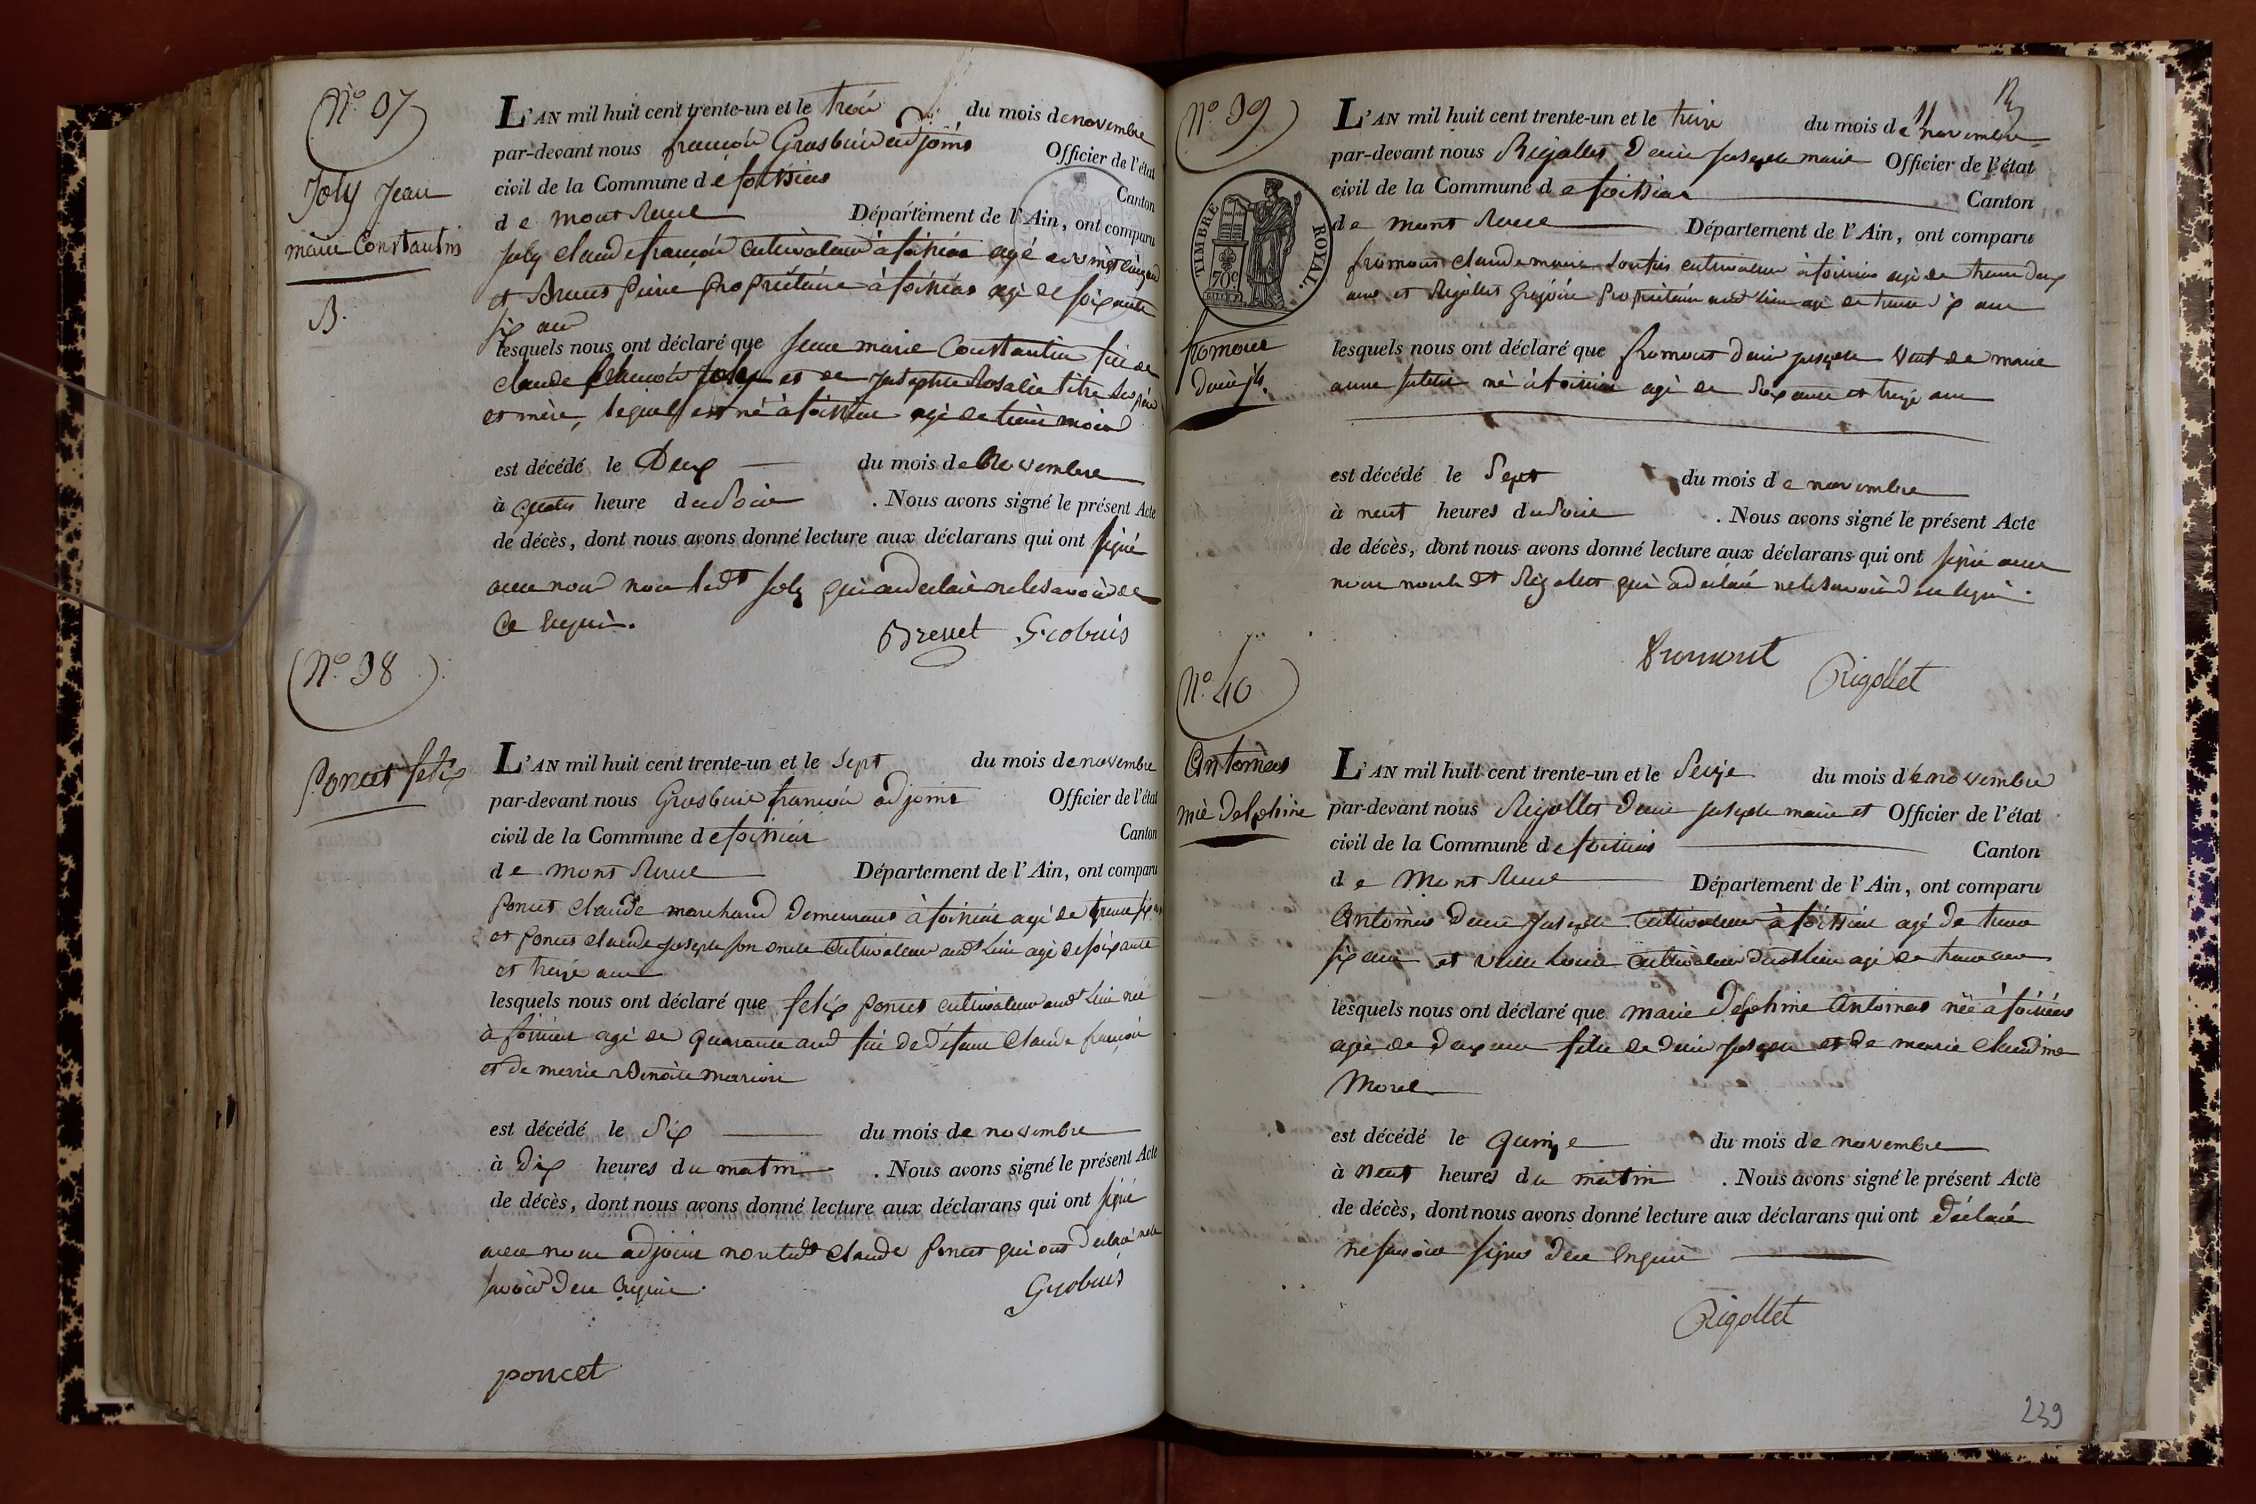 N° 37
Joly Jean
marie Constantin
B.
L'AN mil huit cent trente-un et le trois du mois de novembre
par-devant nous françois Grosbuis adjoint Officier de l'état
civil de la Commune de foissiat Canton
de mont Revel Département de l'Ain, ont comparu
Joly claude françois cultivateur à foissiat agé de vingt cinq ans
et Brevet pierre propriétaire à foissiat agé de soixante
six ans
lesquels nous ont déclaré que Jean marie Constantin fils de
claude françois Joly et de Josephte Rosalie titre ses père
et mère, lequel est né à foissiat agé de treize mois
est décédé le Deux du mois de Novembre
à quatre heure du Soir . Nous avons signé le présent Acte
de décès, dont nous avons donné lecture aux déclarans qui ont signé
avec nous non led^t Joly qui a declaré ne le savoir de
ce Enquis.
Brevet Grobuis
N° 38
Poncet felix
L'AN mil huit cent trente-un et le Sept du mois de novembre
par-devant nous Grosbuis françois adjoint Officier de l'état
civil de la Commune de foissiat Canton
de mont Revel Département de l'Ain, ont comparu
Poncet Claude marchand demeurant à foissiat agé de trente six ans
et Poncet claude Joseph son oncle cultivateur aud^t Lieu agé de soixante
et treize ans
lesquels nous ont déclaré que felix poncet cultivateur aud^t Lieu né
à foissiat agé de quarante ans fils de défunt Claude françois
et de marie Benoite marion
est décédé le Six du mois de novembre
à Dix heures du matin . Nous avons signé le présent Acte
de décès, dont nous avons donné lecture aux déclarans qui ont signé
avec nous adjoint non led^t Claude Poncet qui ont declaré ne le
savoir Dece Enquis.
Grobuis
poncet
N° 39
TIMBRE ROYAL.
70c
fromont
Denis jh.
L'AN mil huit cent trente-un et le treize du mois de novembre
par-devant nous Rigollet Denis Joseph maire Officier de l'état
civil de la Commune de foissiat Canton
de mont Revel Département de l'Ain, ont comparu
fromont claude marie cultivateur à foissiat agé de trente deux
ans et Rigollet Grégoire propriétaire aud^t Lieu agé de trente six ans
lesquels nous ont déclaré que fromont Denis joseph veuf de marie
anne né à foissiat agé de soixante et treize ans
est décédé le Sept du mois de novembre
à neuf heures du soir . Nous avons signé le présent Acte
de décès, dont nous avons donné lecture aux déclarans qui ont signé avec
nous non led^t Rigollet qui a déclaré ne le savoir dece Enquis.
Fromont
Rigollet
N° 40
Antoinas
mie Delphine
L'AN mil huit cent trente-un et le Seize du mois de novembre
par-devant nous Rigollet Denis Joseph maire et Officier de l'état
civil de la Commune de foissiat Canton
de Mont Revel Département de l'Ain, ont comparu
Antoinas Denis Joseph cultivateur à foissiat agé de trente
six ans et Louis cultivateur dud^t Lieu agé de trente ans
lesquels nous ont déclaré que marie Delphine Antoinas née à foissiat
agée de deux ans fille de Denis Joseph et de marie Claudine
Morel
est décédé le quinze du mois de novembre
à neuf heures du matin . Nous avons signé le présent Acte
de décès, dont nous avons donné lecture aux déclarans qui ont déclaré
ne savoir signer dece Enquis
Rigollet
239